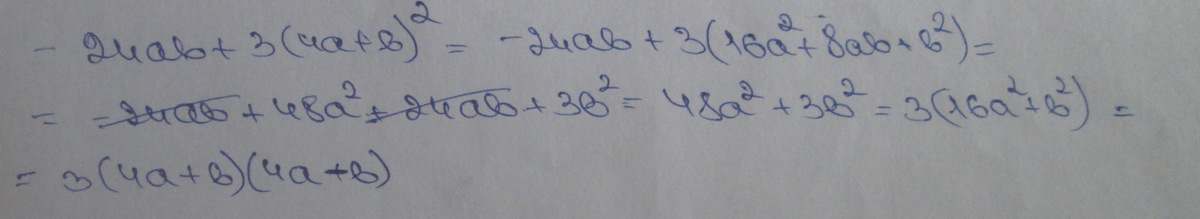 - 24ab + 3(4a+b)² = -24ab + 3(16a² + 8ab + b²) =
= -24ab + 48a² + 24ab + 3b² = 48a² + 3b² = 3(16a² + b²) =
= 3(4a+b)(4a+b)